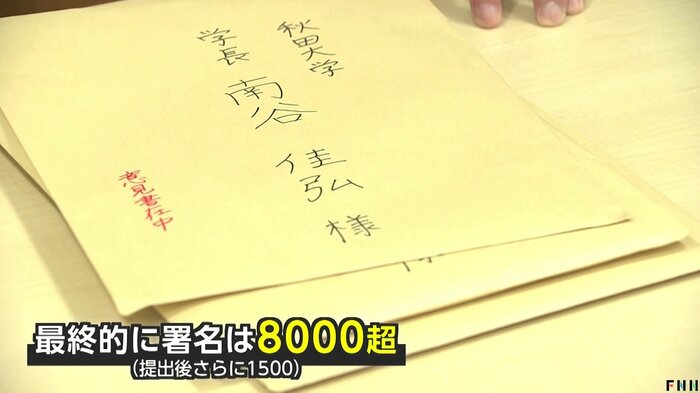 秋田大学
学長 南谷 佳弘 様
意見書在中
最終的に署名は8000超
(提出後さらに1500)
FNN